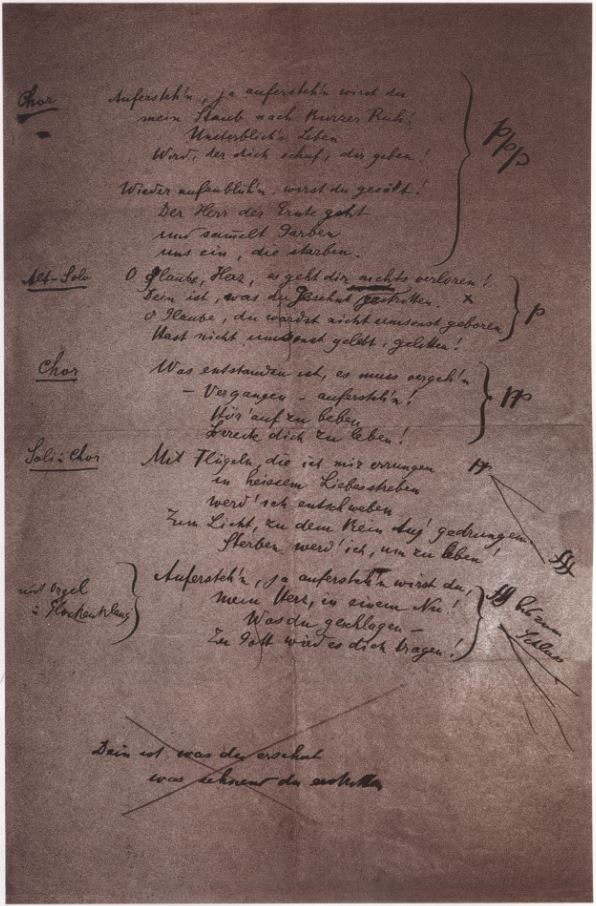 Chor
Aufersteh'n, ja aufersteh'n wirst du
mein Staub nach kurzer Ruh!
Unsterblich's Leben
Wird, der dich schuf, dir geben!
ppp
Wieder aufzublüh'n, wirst du gesät!
Der Herr der Ernte geht
und sam̅elt Garben
uns ein, die starben.
Alt-Solo
O Glaube, Herz, es geht dir nichts verloren!
Dein ist, was du gesehnt gestritten. x
O Glaube, du wardst nicht umsonst geboren
Hast nicht umsonst gelebt, gelitten!
p
Chor
Was entstanden ist, es muss vergeh'n
– Vergangen – aufersteh'n!
Hör' auf zu beben
Bereite dich zu leben!
pp
Soli u Chor
Mit Flügeln, die ich mir errungen
in heissem Liebesstreben
werd' ich entschweben
Zum Licht, zu dem kein Aug' gedrungen
Sterben werd' ich, um zu leben!
pp
fff
mit Orgel
u Glockenklang
Aufersteh'n, ja aufersteh'n wirst du,
mein Herz, in einem Nu!
Was du geschlagen –
Zu Gott wird es dich tragen!
fff bis zum
Schluss
Dein ist was du ersehnt
was sehnend du